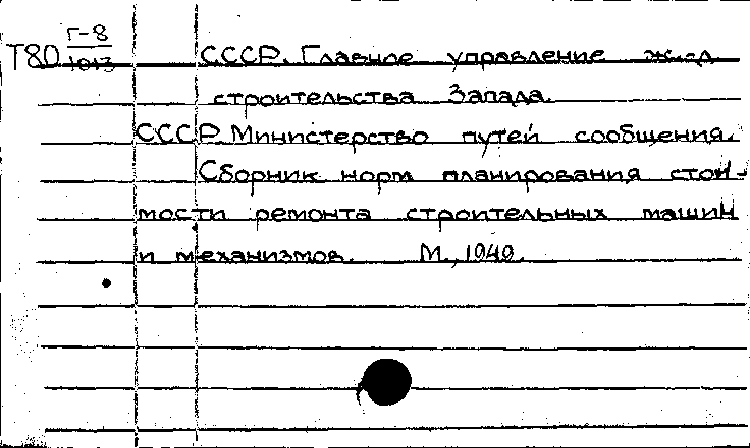 Г-8
Т80 1013 СССР. Главное управление ж.-д.
строительства Запада.
СССР. Министерство путей сообщения.
Сборник норм планирования стои-
мости ремонта строительных машин
и механизмов. М., 1949.